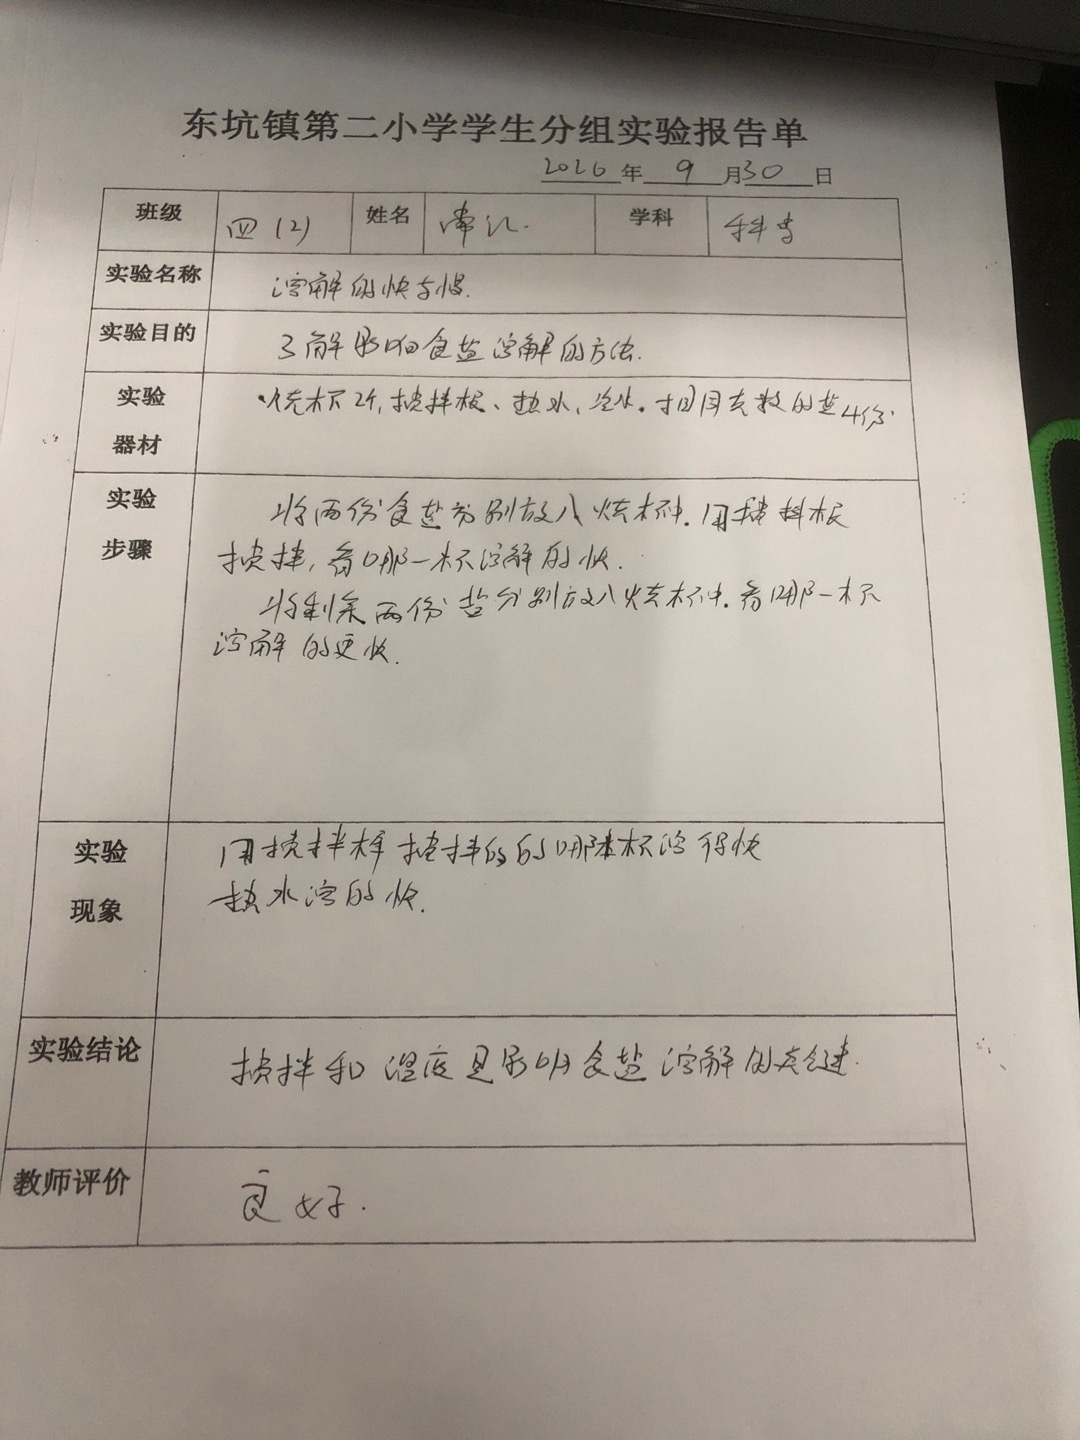 东坑镇第二小学学生分组实验报告单
2026年 9 月30 日
班级 四(2) 姓名 学科 科学
实验名称 溶解的快与慢.
实验目的 了解影响食盐溶解的方法.
实验 烧杯2个,搅拌棍、热水,冷水.相同克数的盐4份
器材
实验 将两份食盐分别放入烧杯中.用搅拌棍
步骤 搅拌,看哪一杯溶解的快.
将剩余两份盐分别放入烧杯中.看哪一杯
溶解的更快.
实验 用搅拌棒搅拌的的那杯溶得快
现象 热水溶的快.
实验结论 搅拌和温度是影响食盐溶解的关键.
教师评价 良好.